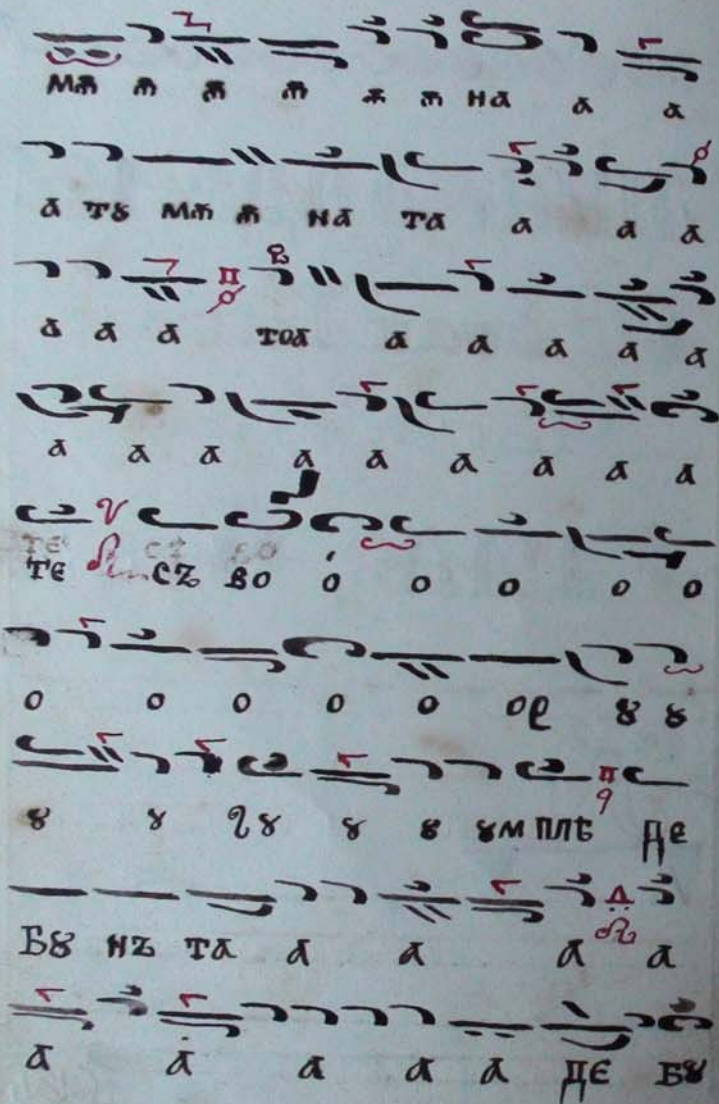 мѫ ѫ ѫ ѫ ѫ ѫ на а а
а тꙋ мѫ ѫ на та а а а
а а а тоа а а а а а
а а а а а а а а а
те съ во о о о о о
о о о о о ор ꙋ ꙋ
ꙋ ꙋ чꙋ ꙋ ꙋ ꙋм плѣ де
Бꙋ нъ та а а а а
а а а а а де Бꙋ